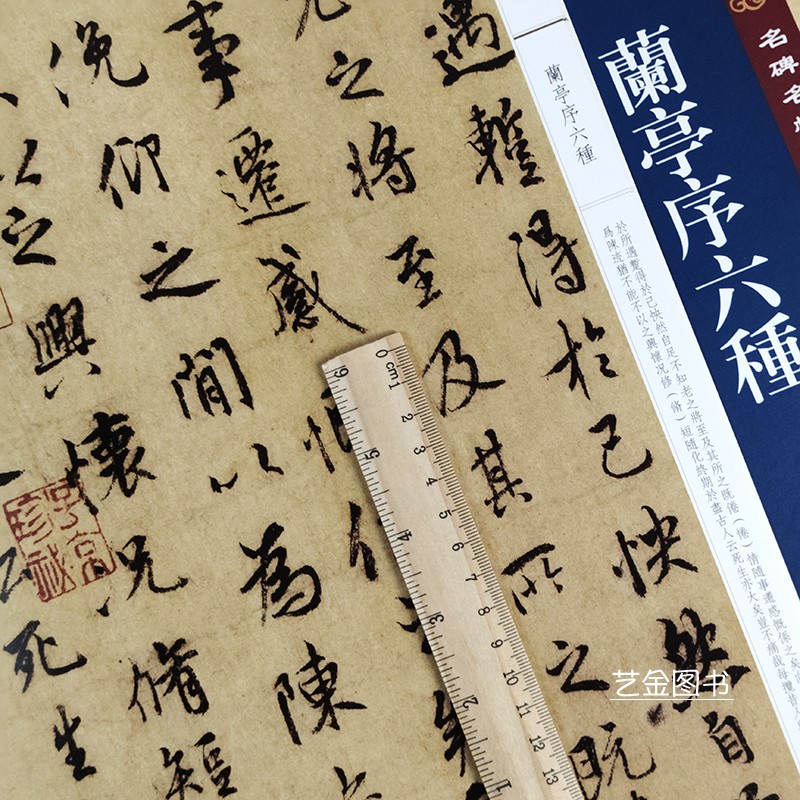 名碑名
蘭亭序六種
蘭亭序六種
於所遇蹔得於己怏然自足不知老之將至及其所之既惓（倦）情隨事遷感慨係之矣
爲陳迹猶不能不以之興懷况修（脩）短隨化終期於盡古人云死生亦大矣豈不痛哉每攬昔人
遇蹔得於己怏然自
之將至及其所之既
事遷感
俛仰之間以為陳
以之興懷況脩短
死生
子京珍秘
0 cm1 2 3 4 5 6 7 8 9 10 11 12 13
艺金图书